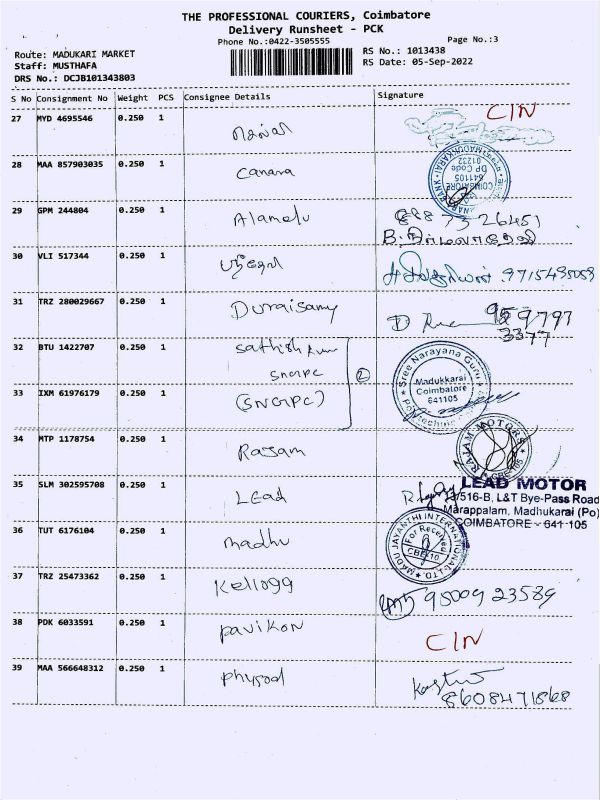 THE PROFESSIONAL COURIERS, Coimbatore
Delivery Runsheet - PCK
Phone No.:0422-3505555
Page No.:3
Route: MADUKARI MARKET
Staff: MUSTHAFA
DRS No.: DCJB101343803
RS No.: 1013438
RS Date: 05-Sep-2022
S No Consignment No Weight PCS Consignee Details Signature
27 MYD 4695546 0.250 1 CIN
28 MAA 857903035 0.250 1 Canara
CANARA BANK
DP Code
01232
641105
COIMBATORE
29 GPM 244804 0.250 1 Alamelu
30 VLI 517344 0.250 1 9715495059
31 TRZ 280029667 0.250 1 Duraisamy
959797
3377
32 BTU 1422707 0.250 1 Sathish Kumar
SNGRPC
2
Sree Narayana Guru
Madukkarai
Coimbatore
641105
Polytechnic
33 IXM 61976179 0.250 1 (SNGRPC)
34 MTP 1178754 0.250 1 Rajam
RAJAM MOTORS
CBE-105
35 SLM 302595708 0.250 1 Lead
LEAD MOTOR
/516-B, L&T Bye-Pass Road
Marappalam, Madhukarai (Po)
COIMBATORE - 641 105
36 TUT 6176104 0.250 1 Madhu
MADU JAYANTHI INTERNATIONAL LTD.
For Received
CBE-10
37 TRZ 25473362 0.250 1 Kellogg 95009 23589
38 PDK 6033591 0.250 1 Pavikon CIN
39 MAA 566648312 0.250 1 8608471868